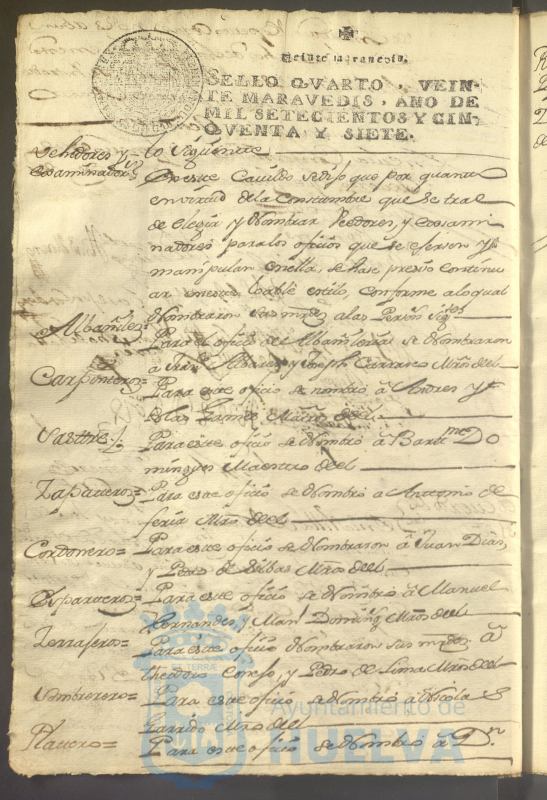 SELLO QVARTO, VEIN-
TE MARAVEDIS, AÑO DE
MIL SETECIENTOS Y CIN-
QVENTA Y SIETE.
Vehedores y lo siguiente
Ecsaminadores En este Cavildo se dijo que por quanto
en virtud de la Constumbre que se trae
de elegir y Nombrar Veedores, y ecsami
nadores para los oficios que se ejersen y
manipulan en ella, se hase presiso continu
ar en este loable estilo, conforme a lo qual
Nombraron sus mrds a las Person
Albañiles= Para el oficio de Albañileria se Nombraron
a y Joseph Carrasco Mros del
Carpinteros= Para este oficio se nombro â Andres y
Maros del
Sastre Para este oficio se Nombro â Bartme Do
mingues Maestro del
Zapateros= Para este oficio se Nombro a Antonio de
feria Mro del
Cordonero= Para este oficio se Nombraron â Juan Dias,
y Pedro de Mros del
Esparteros= Para este oficio se Nombro â Manuel
Hernandes, y Manl Doming Mros del
Para este oficio Nombraron sus mrds â
theodoro Conejo, y Pedro de Lima Mros del
Sombrerero= Para este oficio se Nombro â Nicolas
Garrido Mro del
Platero= Para este oficio se Nombro â Dn
Ayuntamiento de
HUELVA